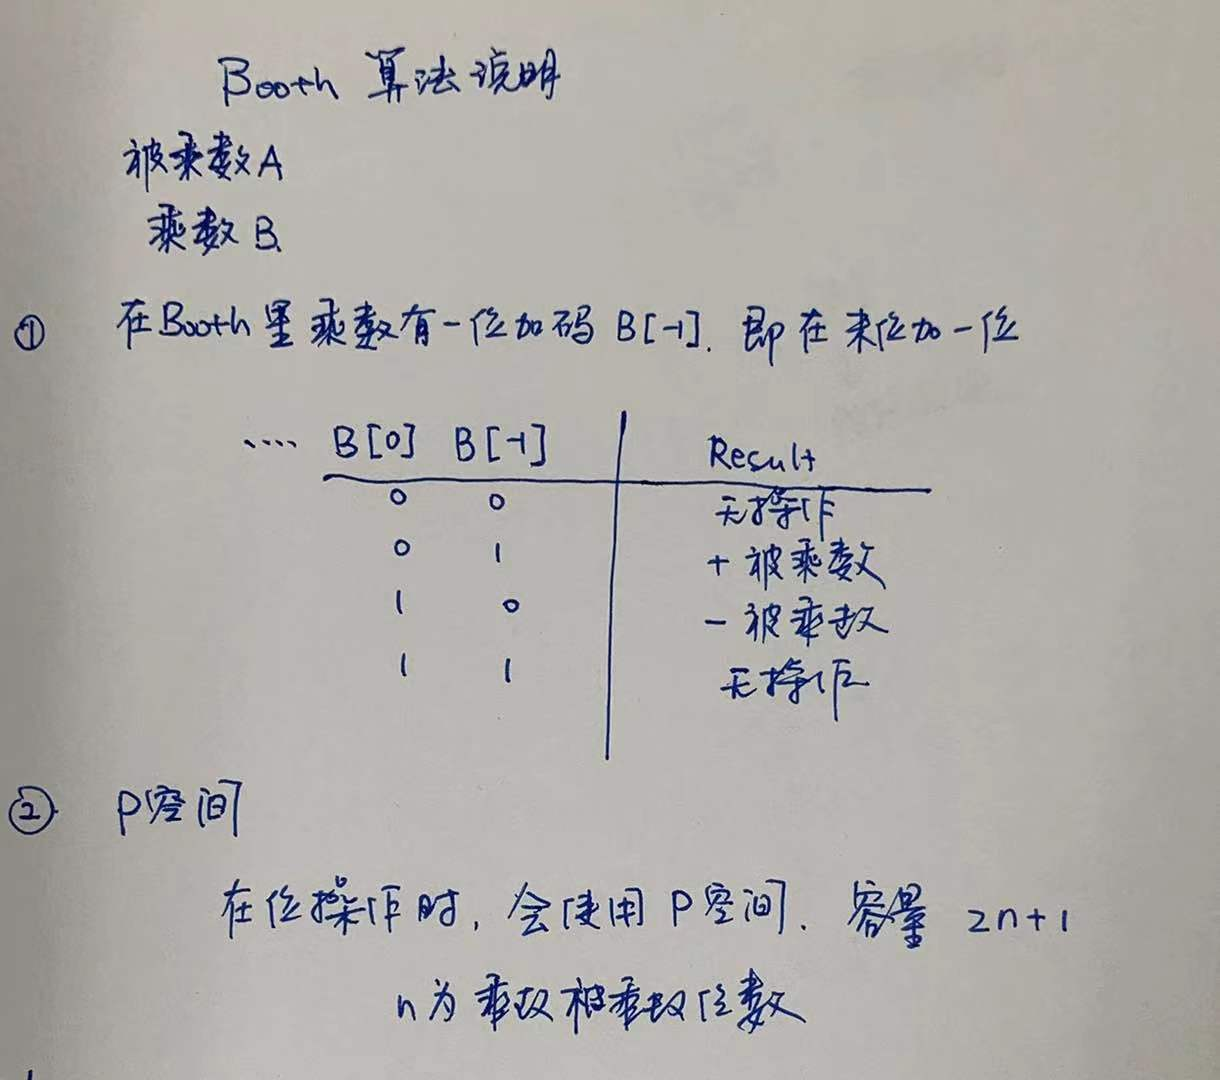 Booth 算法说明
被乘数A
乘数B.
① 在Booth里乘数有一位加码 B[-1]. 即在末位加一位
.... B[0] B[-1] Result
0 0 无操作
0 1 +被乘数
1 0 -被乘数
1 1 无操作
② P空间
在位操作时, 会使用P空间. 容量 2n+1
n为乘数被乘数位数